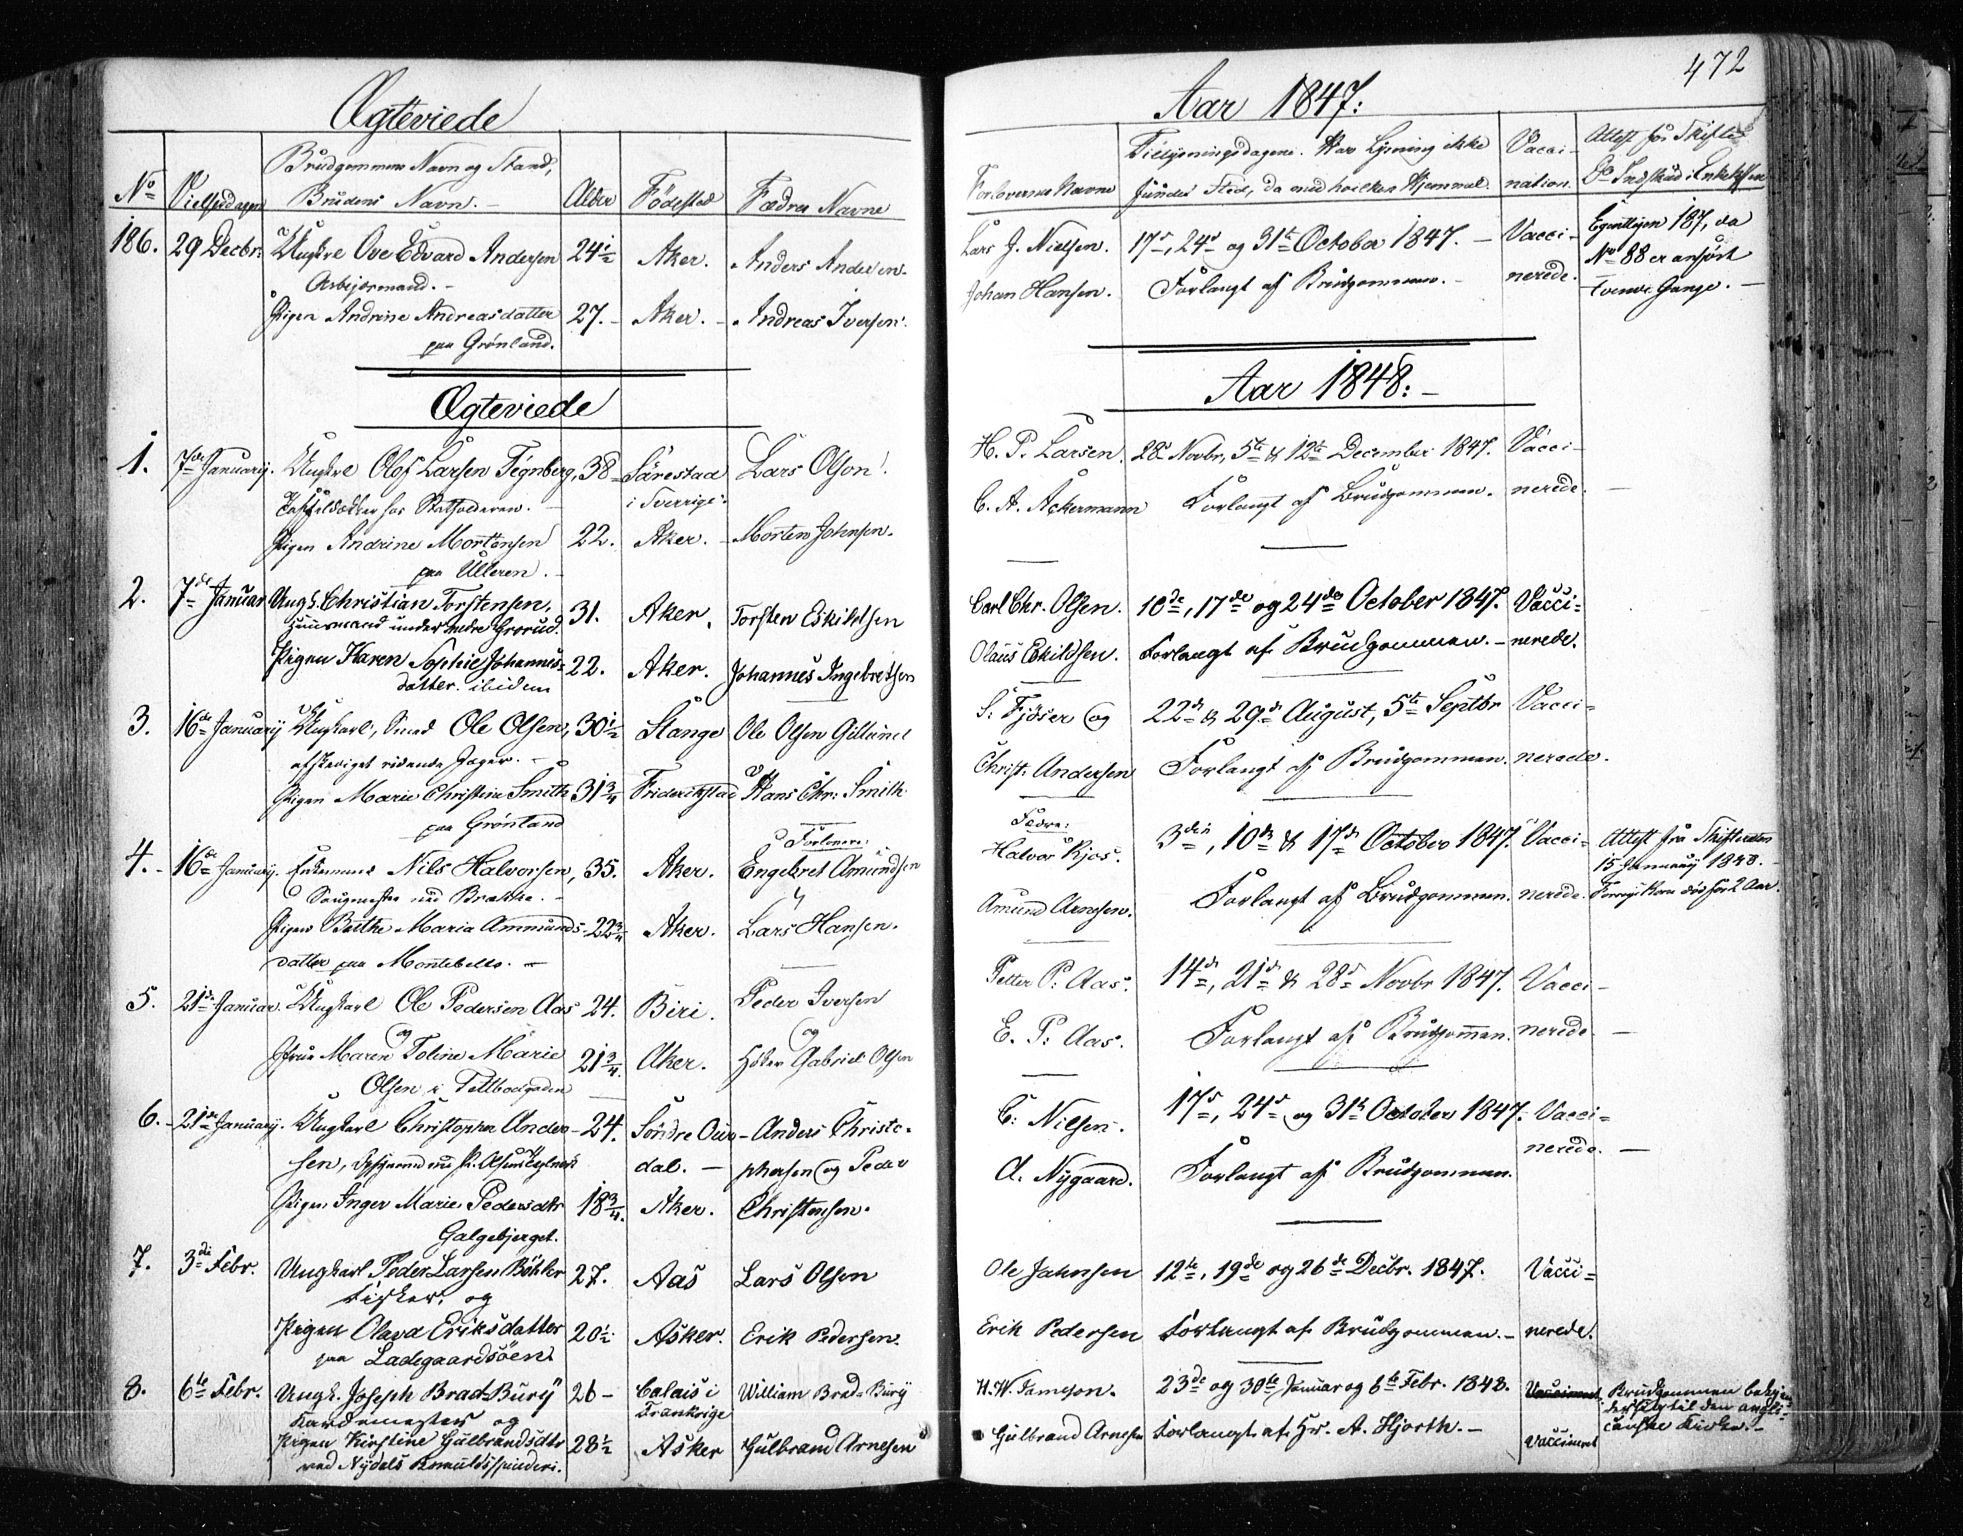 472
Ægteviede
No
Vielsesdagen
Brudgommens Navn og Stand,
Brudens Navn. -
Alder
Fødested
Fædres Navne
186.
29 Decbr.
Ungkrl Ove Edvard Andersen
24½
Aker.
Anders Andersen.
Arbejdsmand. -
Pigen Andrine Andreasdatter
27. -
Aker. -
Andreas Iversen.
paa Grønland.
Ægteviede
1.
7de January.
Ungkrl Olof Larsen Tegnberg,
38
Lars Olson.
i Sverrige.
hos Statholderen. -
Pigen Andrine Mortensen
22.
Aker. -
Morten Johnsen.
paa Ulleren. -
2.
7de Januar
Ungk. Christian Torstensen,
31.
Aker.
Torsten Eskildsen
Huusmand under nedre Grorud.
Pigen Karen Sophie Johannes=
22.
Aker.
Johannes Ingebretsen
datter. ibidem
3.
16de January
Ungkarl, Smed Ole Olsen,
30½
Stange
Ole Olsen Gillund
afskediget ridende Jæger. -
og
Pigen Marie Christine Smith
31¾
Friderikstad
Hans Chr. Smith
paa Grønland
Forlovere:
4. -
16de January.
Enkemand Nils Halvorsen,
35.
Aker.
Engebret Amundsen
Saugmester ved Brække. -
Pigen Berthe Maria Ammunds-
22¾
Aker.
Lars Hansen.
datter paa Montebello. -
5.
21de Januar.
Ungkarl Ole Pedersen Aas
24.
Biri.
Peder Iversen
og
og
Jfrue Maren Toline Marie
21¾.
Aker.
Høker Gabriel Olsen
Olsen i Toldbodgaden
6. -
21de January.
Ungkarl Christopher Ander-
24.
Søndre Our-
Anders Christo-
sen,
dal. -
phersen og Peder
Pigen Inger Marie Pedersdtr
18¾.
Aker.
Christensen.
Galgebjerget.
7.
3die Febr.
Ungkarl Peder Larsen Bøhler
27.
Aas
Lars Olsen
Fisker, og
Pigen Olava Eriksdatter
20½.
Asker.
Erik Pedersen.
paa Ladegaardsøen.
8.
6te Febr.
Ungk. Joseph Brad-Bury
26 -
Calais i
William Brad-Bury
Frankrige
Kardemester og
Pigen Kirstine Gulbrandsdtr
28½
Asker
Gulbrand Arnesen
ved Nydals Bomuldsspinderi.
Aar 1847:
Forlovernes Navne
Tillysningsdagene. Har Lysning ikke
fundet Sted, da med hvilken Hjemmel.
Vacci-
nation.
Attest fra Skifte
Do Indskud i Enkekassen
Lars J. Nielsen.
17de, 24de og 31te October 1847. -
Vacci-
Egentligen 187, da
No 88 er anført
Johan Hansen.
Forlangt af Brudgommen. -
nerede.
tvende Gange. -
Aar 1848: -
H. P. Larsen.
28de Novbr, 5te & 12te December 1847.
Vacci-
C. A. Ackermann
Forlangt af Brudgommen.
nerede. -
Carl Chr. Olsen.
10de, 17de og 24de October 1847.
Vacci=
Olaus Eskildsen.
Forlangt af Brudgommen. -
nerede.
S. Fjøser og
22de & 29de August, 5te Septbr
Vacci=
Christ. Andersen
Forlangt af Brudgommen.
nerede.
Fædre:
Halvor Kjos.
3die, 10de & 17de October 1847.
Vacci=
Attest fra Skifteretten
15 January 1848. -
Amund Arnesen.
Forlangt af Brudgommen.
nerede.
Forrige Kone død for 2 Aar.
Petter P. Aas.
14de, 21de & 28de Novbr 1847.
Vacci-
E. P. Aas.
Forlangt af Brudgommen.
nerede. -
C. Nielsen.
17de, 24de og 31te October 1847.
Vacci=
nerede. -
A. Nygaard.
Forlangt af Brudgommen.
Ole Jahnsen
12te, 19de og 26de Decbr. 1847.
Vacci=
Erik Pedersen
Forlangt af Brudgommen. -
nerede.
W. W. Jameson.
23de og 30te Januar og 6te Febr. 1848.
Vaccineret
Brudgommen bekjen-
der sig til den angli-
canske Kirke. -
Gulbrand Arnesen
Forlangt af Hr. A. Hjorth. -
Vaccineret